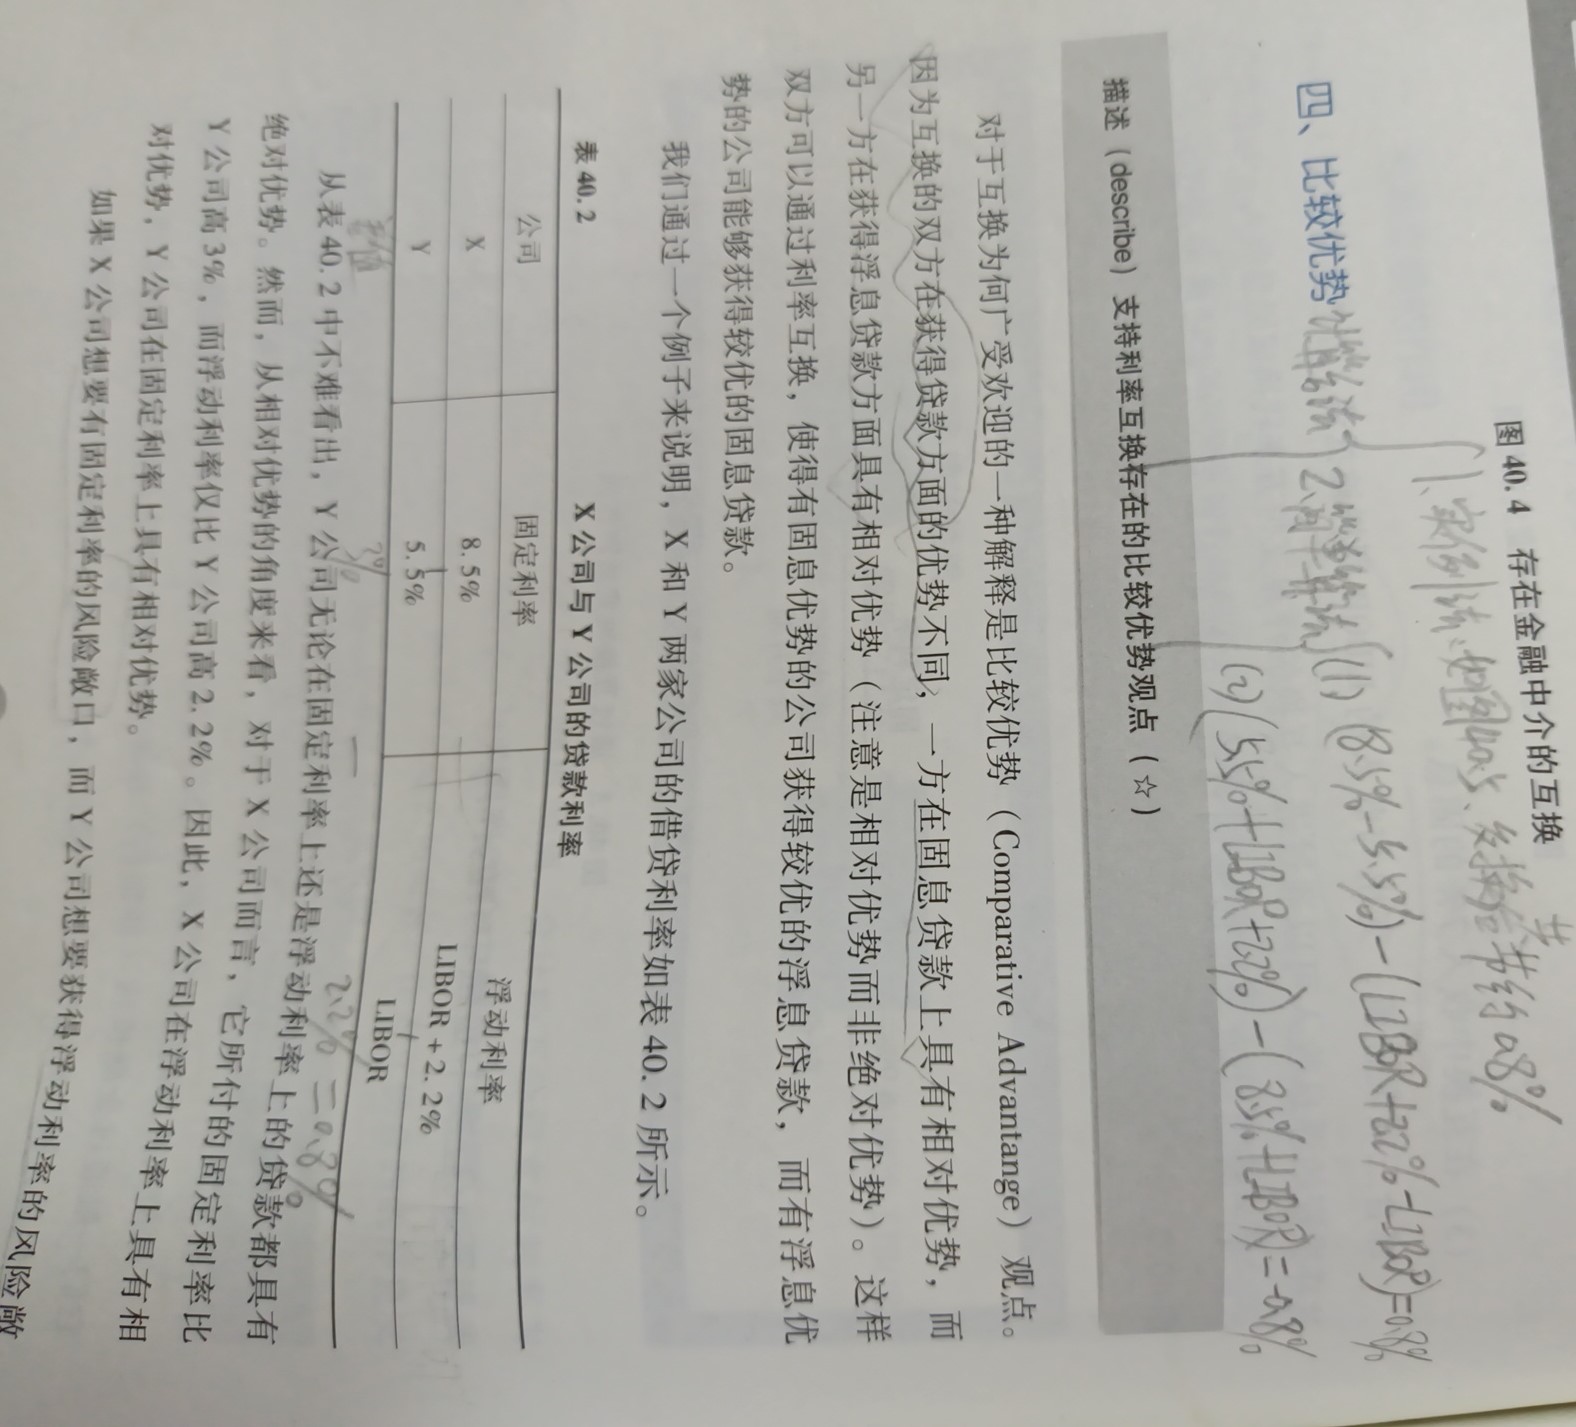 图 40.4 存在金融中介的互换
1、实例法、如图40.5、
共节约0.8%
四、比较优势
2、
(1) (8.5%-5.5%)-(LIBOR+2.2%-LIBOR)=0.8%
(2) (5.5%+LIBOR+2.2%)-(8.5%+LIBOR)=-0.8%
描述（describe）支持利率互换存在的比较优势观点（☆）
对于互换为何广受欢迎的一种解释是比较优势（Comparative Advantange）观点。
因为互换的双方在获得贷款方面的优势不同，一方在固息贷款上具有相对优势，而
另一方在获得浮息贷款方面具有相对优势（注意是相对优势而非绝对优势）。这样
双方可以通过利率互换，使得有固息优势的公司获得较优的浮息贷款，而有浮息优
势的公司能够获得较优的固息贷款。
我们通过一个例子来说明，X 和 Y 两家公司的借贷利率如表 40.2 所示。
表 40.2 X 公司与 Y 公司的贷款利率
公司 固定利率 浮动利率
X 8.5% LIBOR + 2.2%
Y 5.5% LIBOR
差值 3% — 2.2% = 0.8%
从表 40.2 中不难看出，Y 公司无论在固定利率上还是浮动利率上的贷款都具有
绝对优势。然而，从相对优势的角度来看，对于 X 公司而言，它所付的固定利率比
Y 公司高 3%，而浮动利率仅比 Y 公司高 2.2%。因此，X 公司在浮动利率上具有相
对优势，Y 公司在固定利率上具有相对优势。
如果 X 公司想要有固定利率的风险敞口，而 Y 公司想要获得浮动利率的风险敞